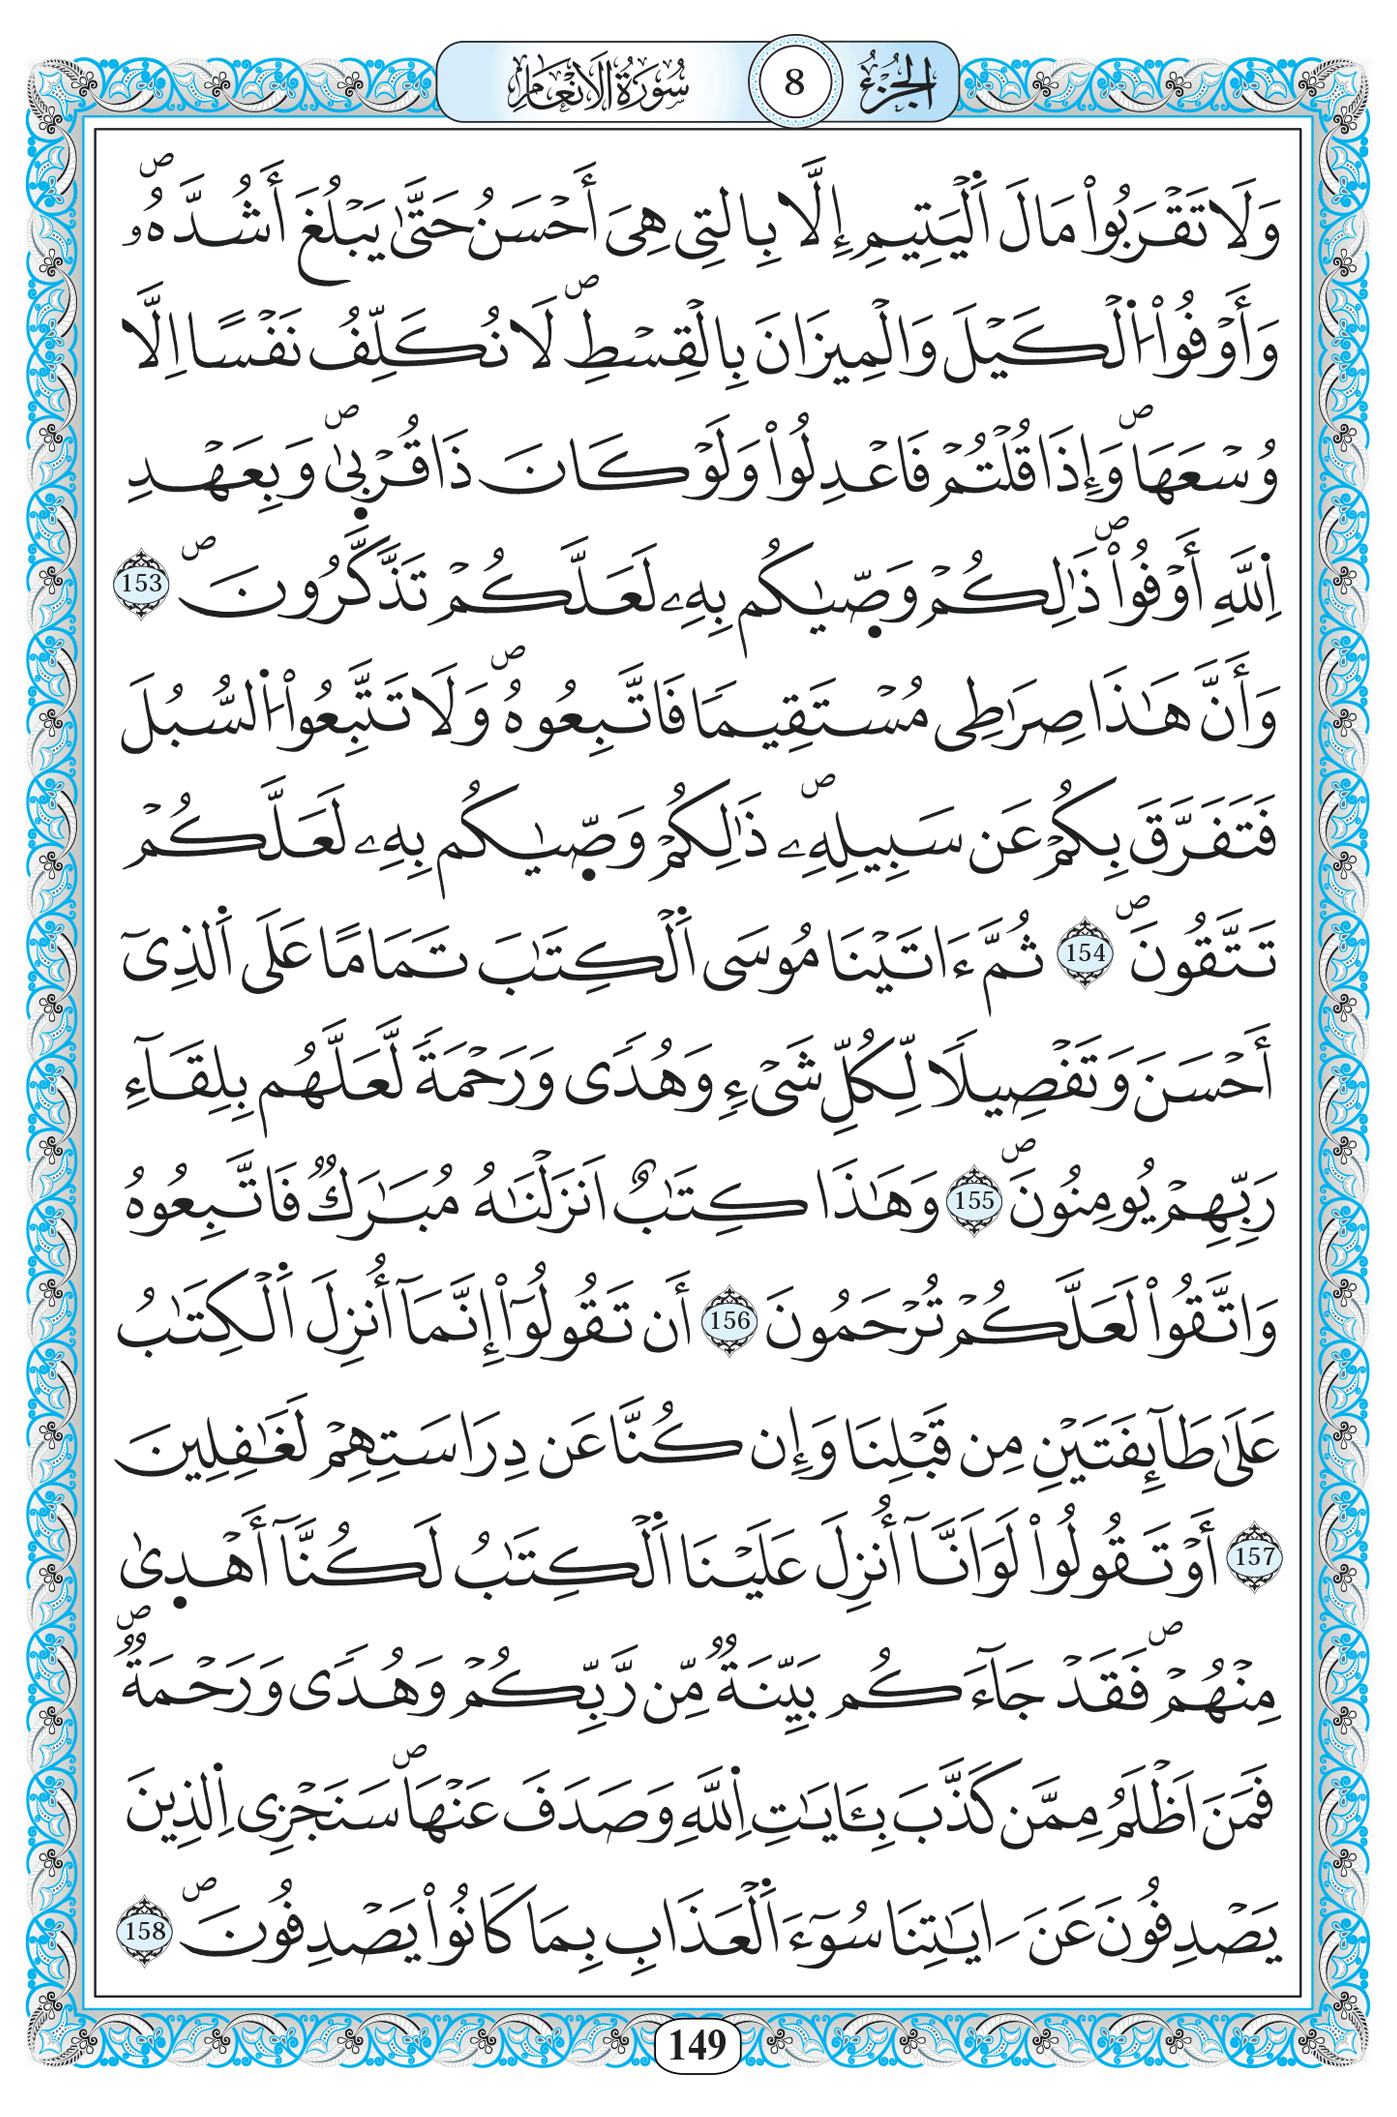 الجزء 8 سورة الأنعام
وَلَا تَقْرَبُواْ مَالَ اَ۬لْيَتِيمِ إِلَّا بِالتِے هِيَ أَحْسَنُ حَتَّىٰ يَبْلُغَ أَشُدَّهُۥۖ
وَأَوْفُواْ اُ۬لْكَيْلَ وَالْمِيزَانَ بِالْقِسْطِۖ لَا نُكَلِّفُ نَفْسًا اِلَّا
وُسْعَهَاۖ وَإِذَا قُلْتُمْ فَاعْدِلُواْ وَلَوْ كَانَ ذَا قُرْبٜيٰۖ وَبِعَهْدِ
اِ۬للَّهِ أَوْفُواْۖ ذَٰلِكُمْ وَصّٜيٰكُم بِهِۦ لَعَلَّكُمْ تَذَّكَّرُونَۖ 153
وَأَنَّ هَٰذَا صِرَٰطِے مُسْتَقِيمٗا فَاتَّبِعُوهُۖ وَلَا تَتَّبِعُواْ اُ۬لسُّبُلَ
فَتَفَرَّقَ بِكُمْ عَن سَبِيلِهِۦۖ ذَٰلِكُمْ وَصّٜيٰكُم بِهِۦ لَعَلَّكُمْ
تَتَّقُونَۖ 154 ثُمَّ ءَاتَيْنَا مُوسَى اَ۬لْكِتَٰبَ تَمَامًا عَلَى اَ۬لذِےٓ
أَحْسَنَ وَتَفْصِيلٗا لِّكُلِّ شَےْءٖ وَهُدٗى وَرَحْمَةٗ لَّعَلَّهُم بِلِقَآءِ
رَبِّهِمْ يُومِنُونَۖ 155 وَهَٰذَا كِتَٰبٌ اَنزَلْنَٰهُ مُبَٰرَكٞ فَاتَّبِعُوهُ
وَاتَّقُواْ لَعَلَّكُمْ تُرْحَمُونَ 156 أَن تَقُولُوٓاْ إِنَّمَآ أُنزِلَ اَ۬لْكِتَٰبُ
عَلَىٰ طَآئِفَتَيْنِ مِن قَبْلِنَا وَإِن كُنَّا عَن دِرَاسَتِهِمْ لَغَٰفِلِينَ
157 أَوْ تَقُولُواْ لَوَ اَنَّآ أُنزِلَ عَلَيْنَا اَ۬لْكِتَٰبُ لَكُنَّآ أَهْدٜيٰ
مِنْهُمْۖ فَقَدْ جَآءَكُم بَيِّنَةٞ مِّن رَّبِّكُمْ وَهُدٗى وَرَحْمَةٞۖ
فَمَنَ اَظْلَمُ مِمَّن كَذَّبَ بِـَٔايَٰتِ اِ۬للَّهِ وَصَدَفَ عَنْهَاۖ سَنَجْزِے اِ۬لذِينَ
يَصْدِفُونَ عَنَ ـ اٰيَٰتِنَا سُوٓءَ اَ۬لْعَذَابِ بِمَا كَانُواْ يَصْدِفُونَۖ 158
149